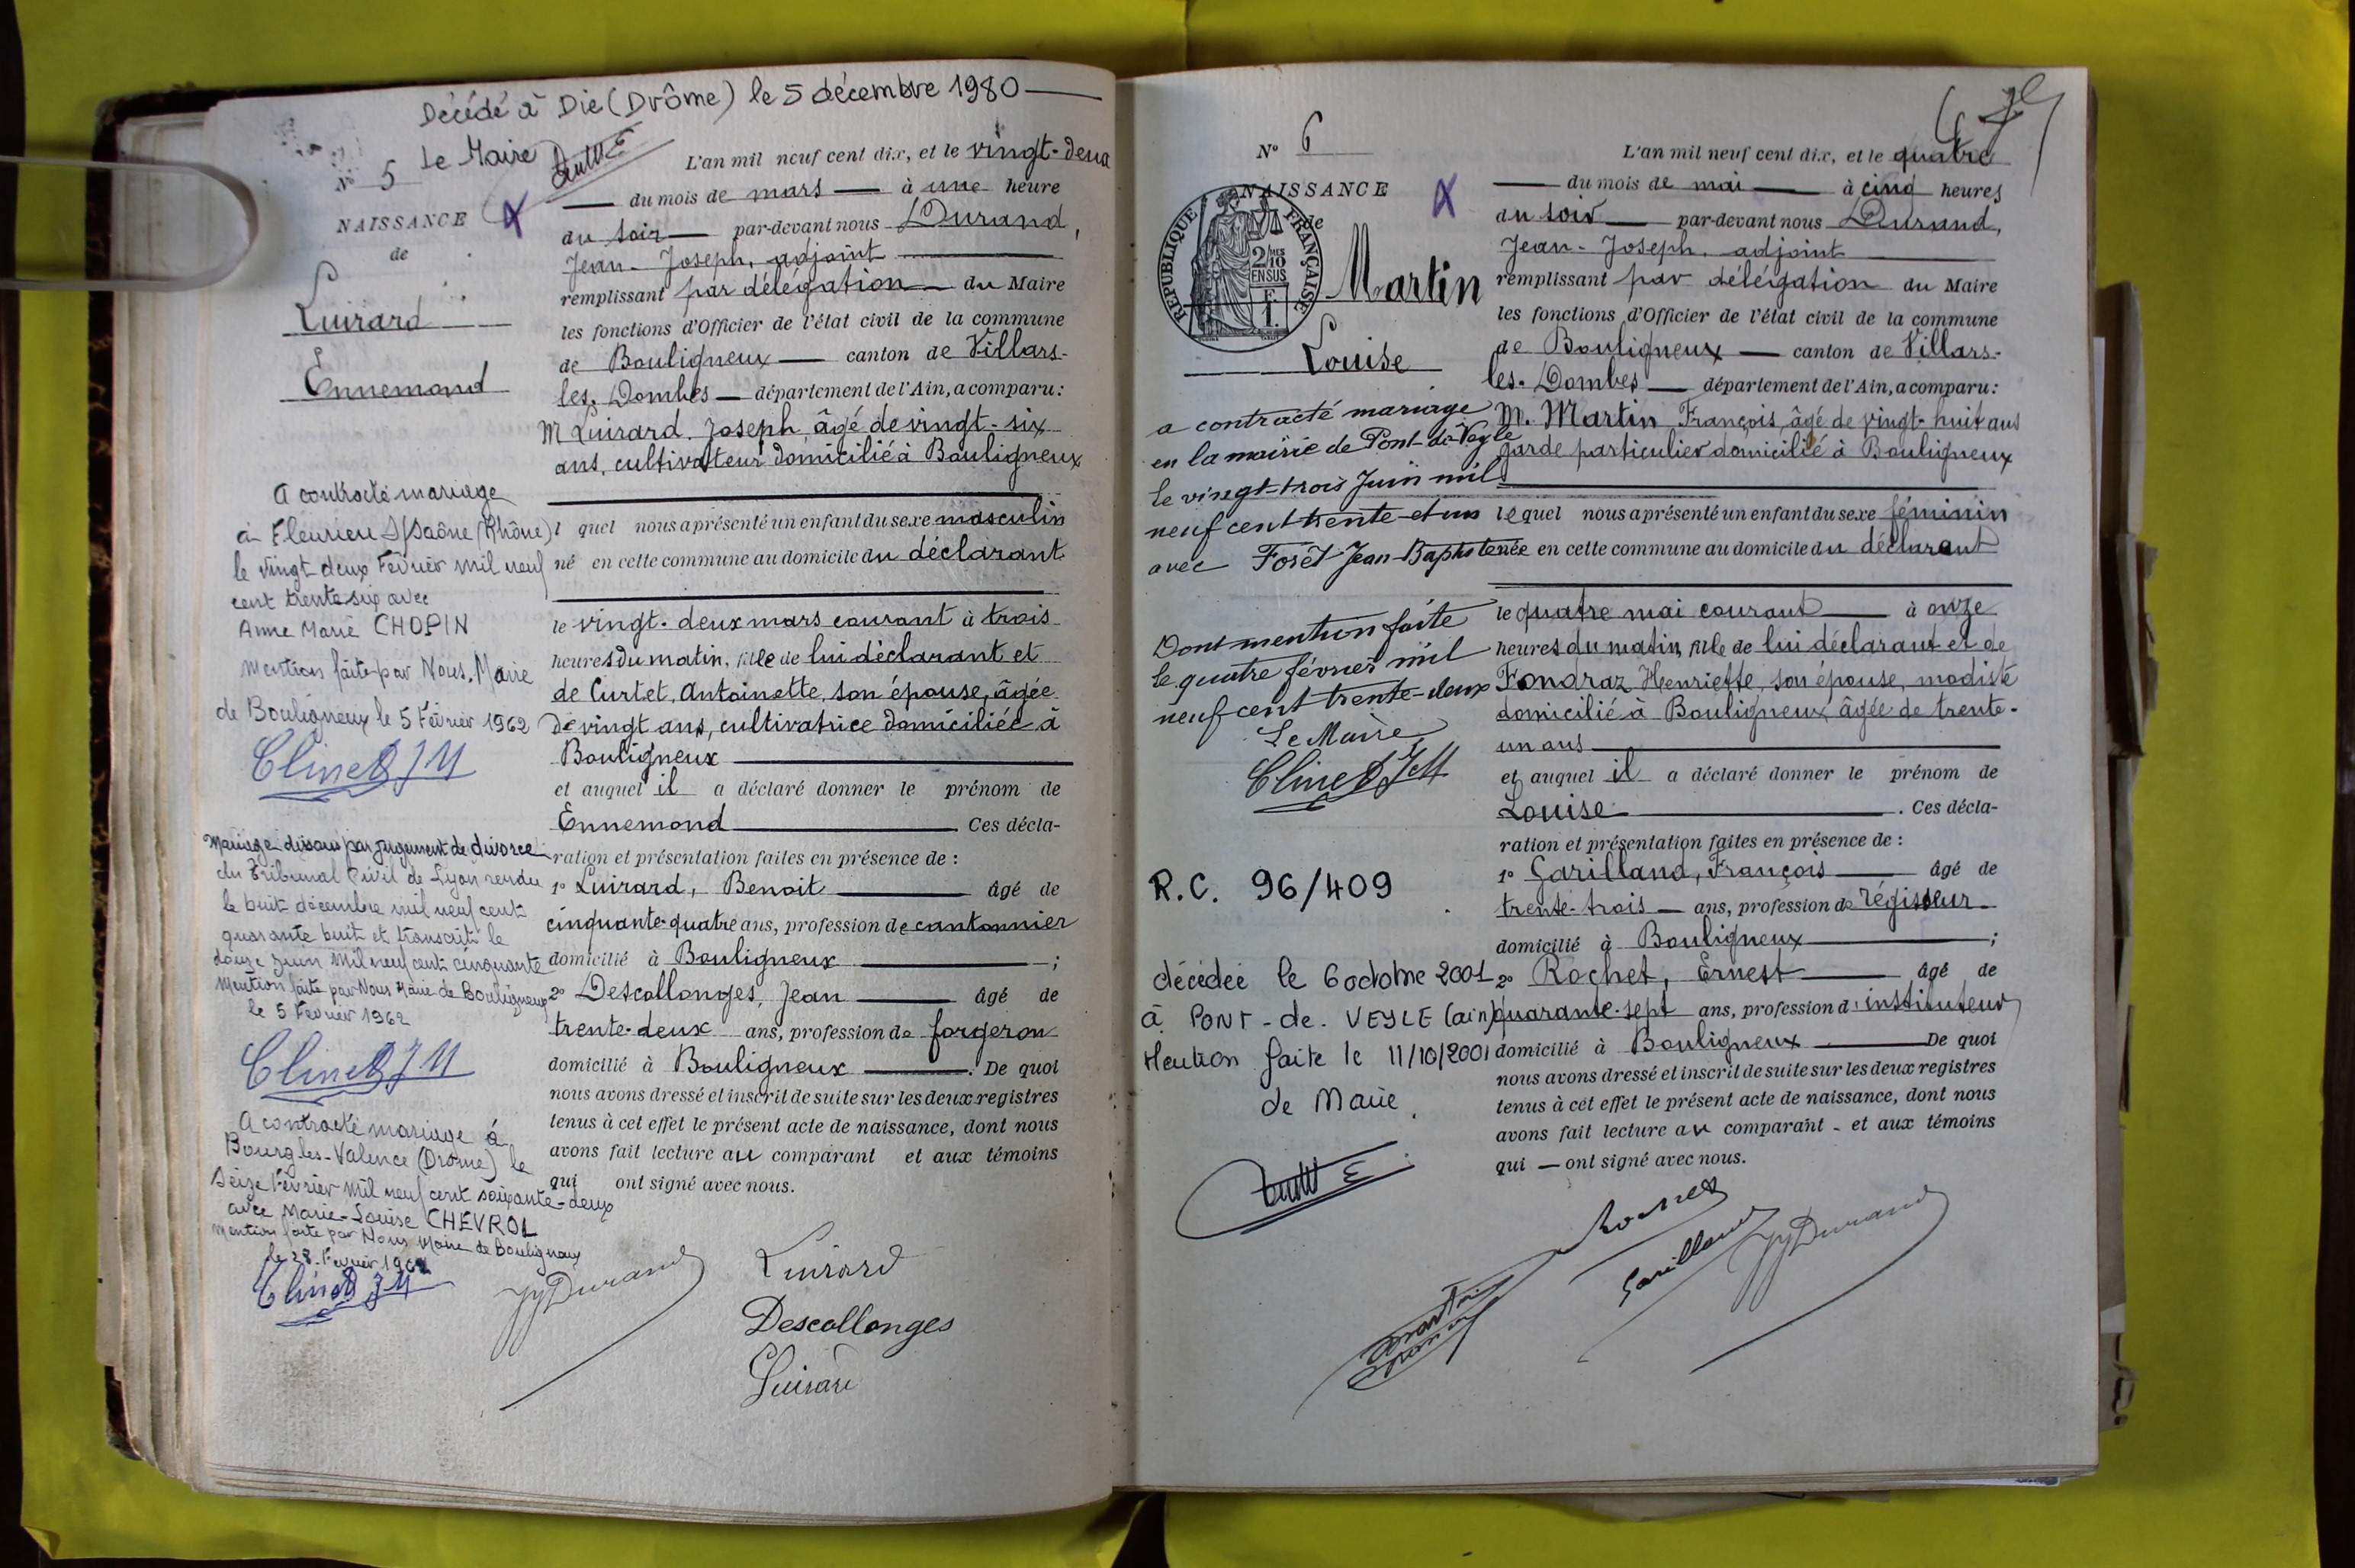 Décédé à Die (Drôme) le 5 décembre 1980
Le Maire
N° 5
NAISSANCE
de
Luirard
Ennemond
A contracté mariage
à Fleurieu S/Saône (Rhône)
le vingt deux Février mil neuf
cent trente six avec
Anne Marie CHOPIN
Mention faite par Nous, Maire
de Bouligneux le 5 Février 1962
Clinet JM
Mariage dissous par jugement de divorce
du Tribunal Civil de Lyon rendu
le huit décembre mil neuf cent
quarante huit et transcrit le
douze Juin mil neuf cent cinquante
Mention faite par Nous Maire de Bouligneux
le 5 Février 1962
Clinet JM
A contracté mariage à
Bourg-les-Valence (Drôme) le
Seize Février mil neuf cent soixante-deux
avec Marie-Louise CHEVROL
Mention faite par Nous Maire de Bouligneux
le 28 Février 1962
Clinet JM
L'an mil neuf cent dix, et le vingt-deux
du mois de mars à une heure
du soir par-devant nous Durand,
Jean-Joseph, adjoint
remplissant par délégation du Maire
les fonctions d'Officier de l'état civil de la commune
de Bouligneux canton de Villars-
les-Dombes département de l'Ain, a comparu :
M Luirard Joseph, âgé de vingt-six
ans, cultivateur domicilié à Bouligneux
l quel nous a présenté un enfant du sexe masculin
né en cette commune au domicile du déclarant
le vingt-deux mars courant à trois
heures du matin, fils de lui déclarant et
de Curtet, Antoinette, son épouse, âgée
de vingt ans, cultivatrice domiciliée à
Bouligneux
et auquel il a déclaré donner le prénom de
Ennemond Ces décla-
ration et présentation faites en présence de :
1° Luirard, Benoit âgé de
cinquante-quatre ans, profession de cantonnier
domicilié à Bouligneux ;
2° Descollonges, Jean âgé de
trente-deux ans, profession de forgeron
domicilié à Bouligneux . De quoi
nous avons dressé et inscrit de suite sur les deux registres
tenus à cet effet le présent acte de naissance, dont nous
avons fait lecture au comparant et aux témoins
qui ont signé avec nous.
JJ Durand
Luirard
Descollonges
Luirard
N° 6
NAISSANCE
de
RÉPUBLIQUE FRANÇAISE
2/10 EN SUS
Martin
Louise
a contracté mariage
en la mairie de Pont-de-Veyle
le vingt-trois Juin mil
neuf cent trente-et-un
avec Forêt Jean-Baptiste
Dont mention faite
le quatre février mil
neuf cent trente-deux
Le Maire
R.C. 96/409
décédée le 6 octobre 2001
à PONT-de-VEYLE (ain)
Mention faite le 11/10/2001
de Maire
L'an mil neuf cent dix, et le quatre
du mois de mai à cinq heures
du soir par-devant nous Durand,
Jean-Joseph, adjoint
remplissant par délégation du Maire
les fonctions d'Officier de l'état civil de la commune
de Bouligneux canton de Villars-
les-Dombes département de l'Ain, a comparu :
M. Martin François, âgé de vingt-huit ans
garde particulier domicilié à Bouligneux
lequel nous a présenté un enfant du sexe féminin
née en cette commune au domicile du déclarant
le quatre mai courant à onze
heures du matin, fille de lui déclarant et de
Fondraz Henriette, son épouse, modiste
domicilié à Bouligneux âgée de trente-
un ans
et auquel il a déclaré donner le prénom de
Louise . Ces décla-
ration et présentation faites en présence de :
1° Garilland, François âgé de
trente-trois ans, profession de régisseur
domicilié à Bouligneux ;
2° Rochet, Ernest âgé de
quarante-sept ans, profession d'instituteur
domicilié à Bouligneux De quoi
nous avons dressé et inscrit de suite sur les deux registres
tenus à cet effet le présent acte de naissance, dont nous
avons fait lecture au comparant et aux témoins
qui ont signé avec nous.
Rochet
Garilland
JJ Durand